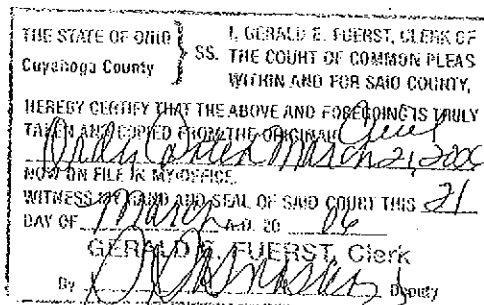 THE STATE OF OHIO
Cuyahoga County
SS.
I, GERALD E. FUERST, CLERK OF
THE COURT OF COMMON PLEAS
WITHIN AND FOR SAID COUNTY,
HEREBY CERTIFY THAT THE ABOVE AND FOREGOING IS TRULY
TAKEN AND COPIED FROM THE ORIGINAL
March 21, 2006
NOW ON FILE IN MY OFFICE.
WITNESS MY HAND AND SEAL OF SAID COURT THIS 21
DAY OF March A.D. 20 06
GERALD E. FUERST, Clerk
By Deputy